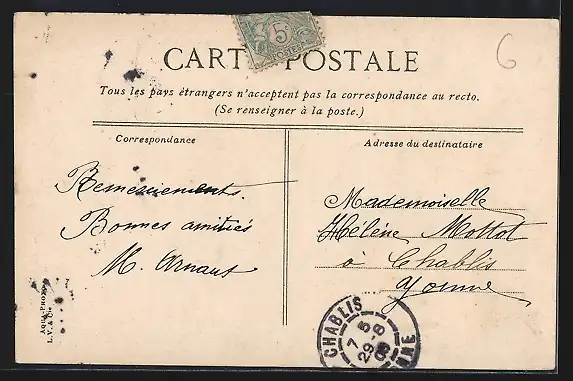 CARTE POSTALE
5c
POSTES
6
Tous les pays étrangers n'acceptent pas la correspondance au recto.
(Se renseigner à la poste.)
Correspondance
Remerciements.
Bonnes amitiés
M. Arnaut
Adresse du destinataire
Mademoiselle
Hélène Mottot
à Chablis
Yonne
AQUA-PHOTO
L.V. & Cie
CHABLIS
7 5
29-8